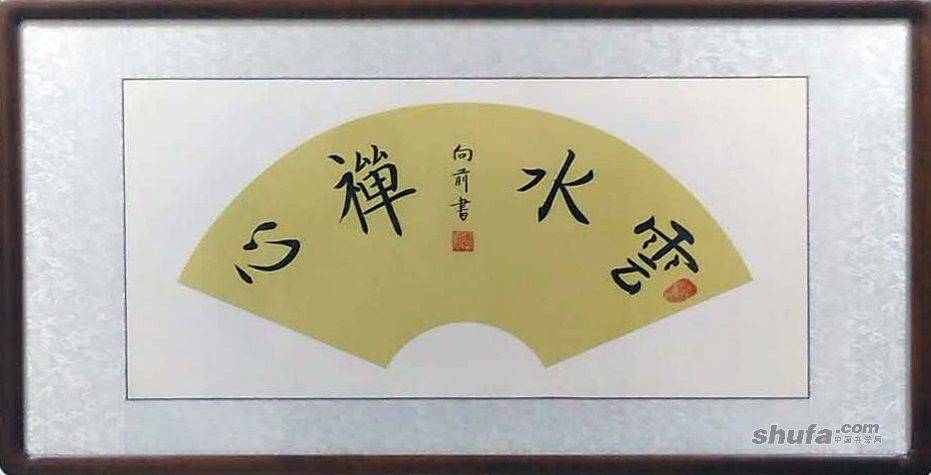 雲水禪心
向前書
shufa.com
中国书法网